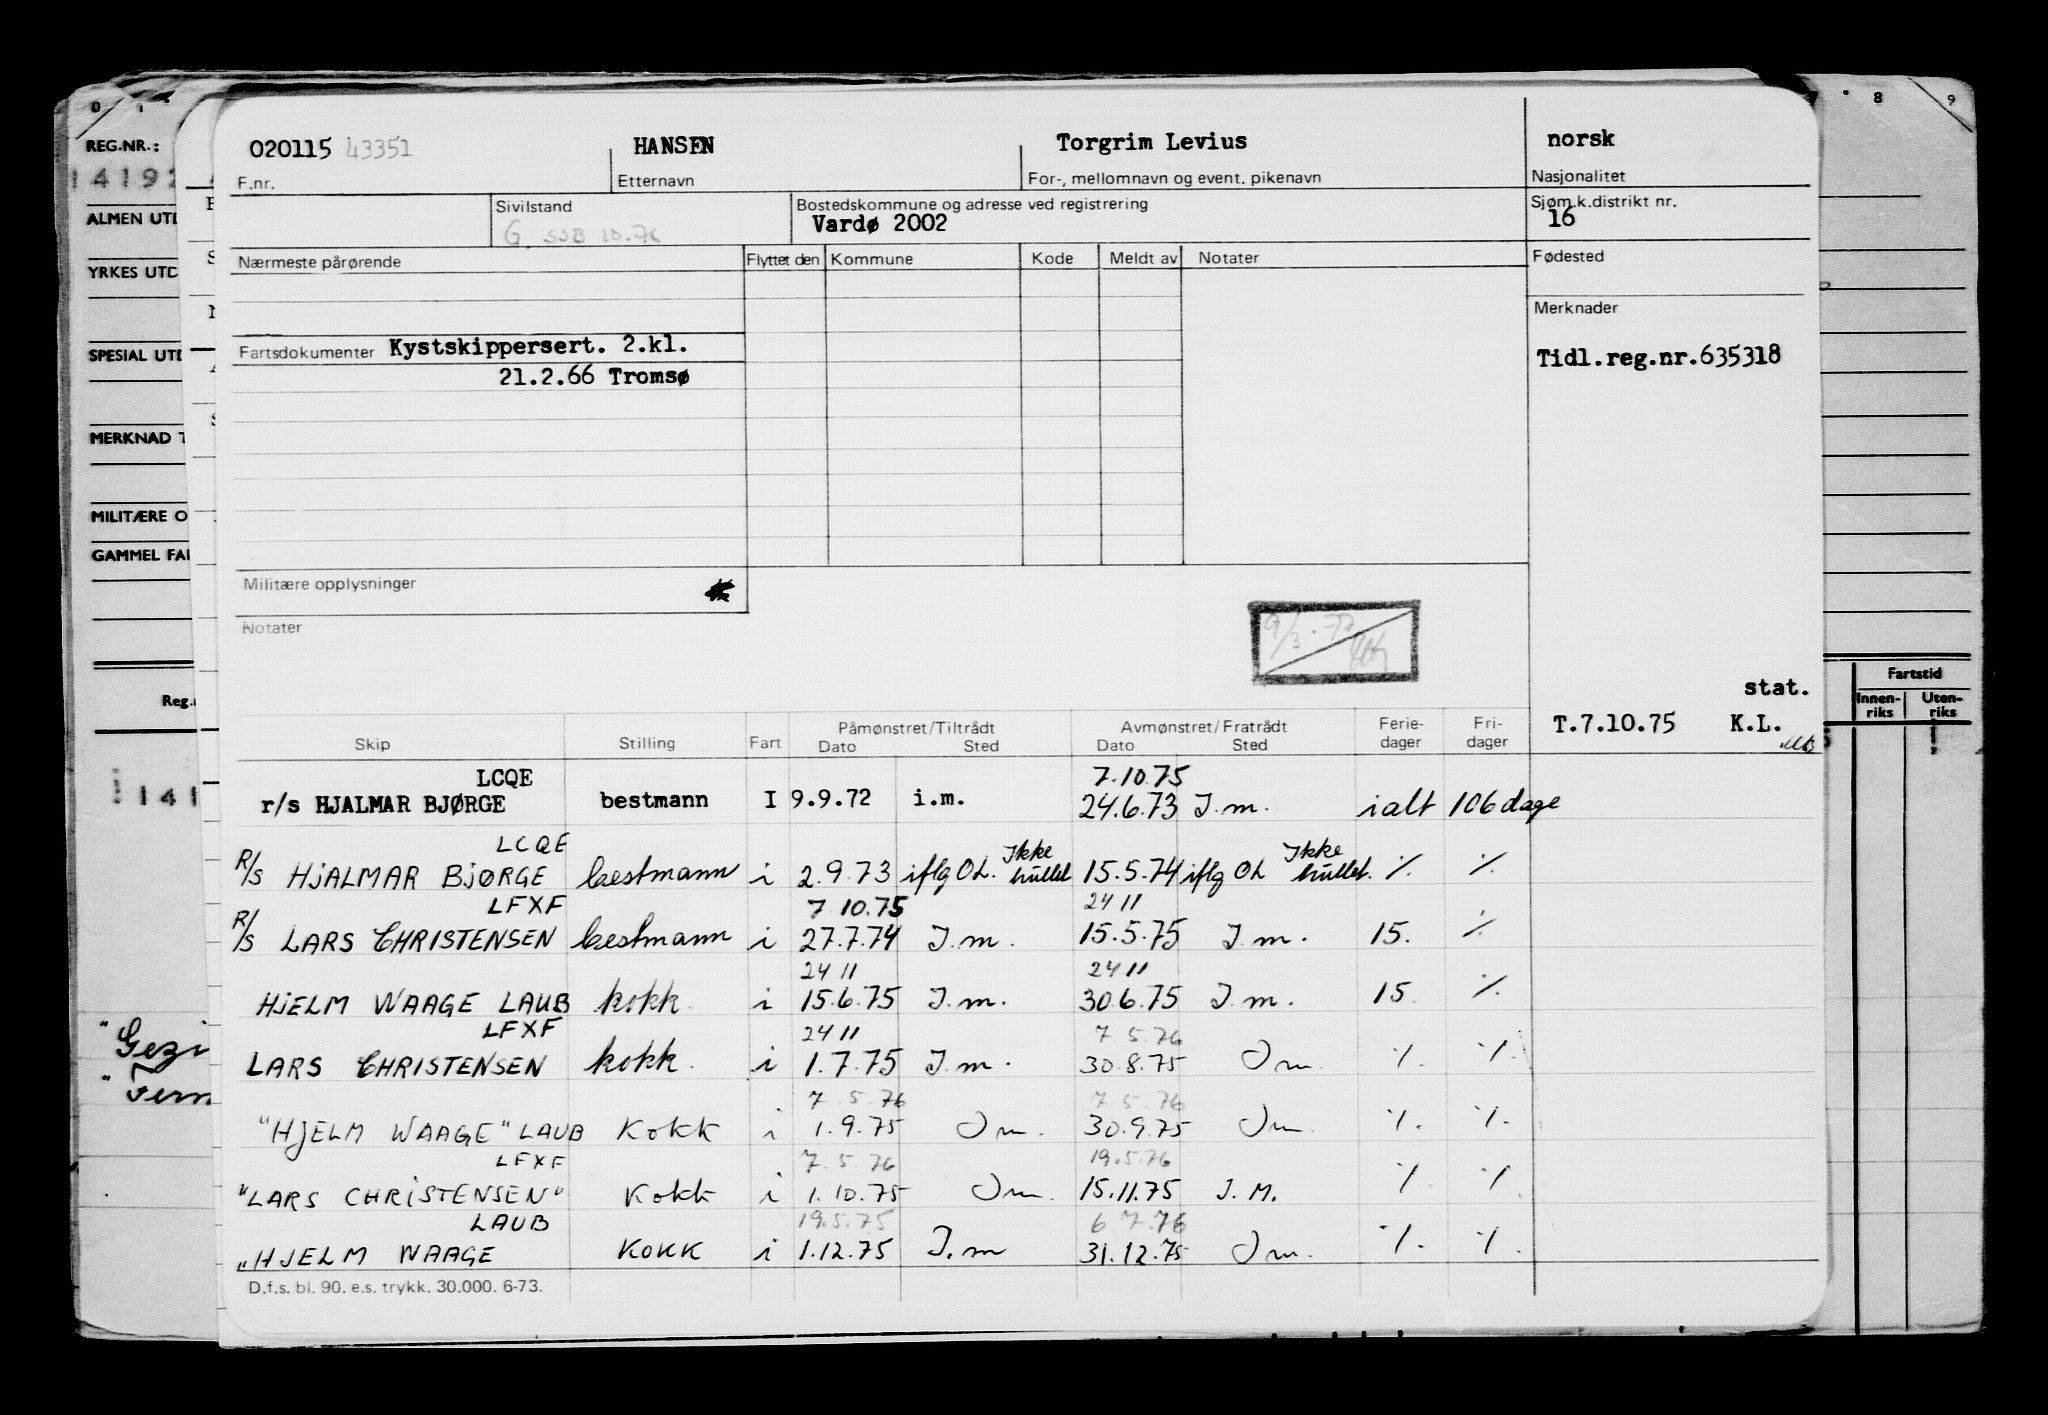 0 1 8 9
REG.NR.:
14192
ALMEN UTD
YRKES UTD
SPESIAL UTD
MERKNAD T
MILITÆRE O
GAMMEL FAR
Reg.
141
"Gezi
"Fern
Fartstid
Innen-riks Uten-riks
020115 43351 HANSEN Torgrim Levius norsk
F.nr. Etternavn For-, mellomnavn og event. pikenavn Nasjonalitet
Sivilstand Bostedskommune og adresse ved registrering Sjøm.k.distrikt nr.
G SSB 10.76 Vardø 2002 16
Nærmeste pårørende Flyttet den Kommune Kode Meldt av Notater Fødested
Merknader
Fartsdokumenter Kystskippersert. 2.kl. Tidl.reg.nr.635318
21.2.66 Tromsø
Militære opplysninger
Notater
9/3.77
stat.
T.7.10.75 K.L.
Påmønstret/Tiltrådt Avmønstret/Fratrådt Ferie-dager Fri-dager
Skip Stilling Fart Dato Sted Dato Sted
LCQE 7.10.75
r/s HJALMAR BJØRGE bestmann I 9.9.72 i.m. 24.6.73 I.m. ialt 106 dage
LCQE Ikke Ikke
R/S HJALMAR BJØRGE bestmann i 2.9.73 iflg OL. hullet 15.5.74 iflg OL hullet. ٪ ٪
LFXF 7 10.75 24 11
R/S LARS CHRISTENSEN bestmann i 27.7.74 I.m. 15.5.75 I.m. 15. ٪
24 11 24 11
HJELM WAAGE LAUB kokk. i 15.6.75 I.m. 30.6.75 I.m. 15. ٪
LFXF 24 11 7 5.76
LARS CHRISTENSEN kokk. i 1.7.75 I.m. 30.8.75 Im. ٪ ٪
7.5.76 7 5.76
"HJELM WAAGE" LAUB Kokk i 1.9.75 Im. 30.9.75 Im. ٪ ٪
LFXF 7.5.76 19.5.76
"LARS CHRISTENSEN" Kokk i 1.10.75 Im. 15.11.75 I.M. ٪ ٪
LAUB 19.5.75 6.7.76
"HJELM WAAGE KOKK i 1.12.75 I.m 31.12.75 Im. ٪ ٪
D.f.s. bl. 90. e.s. trykk. 30.000. 6-73.